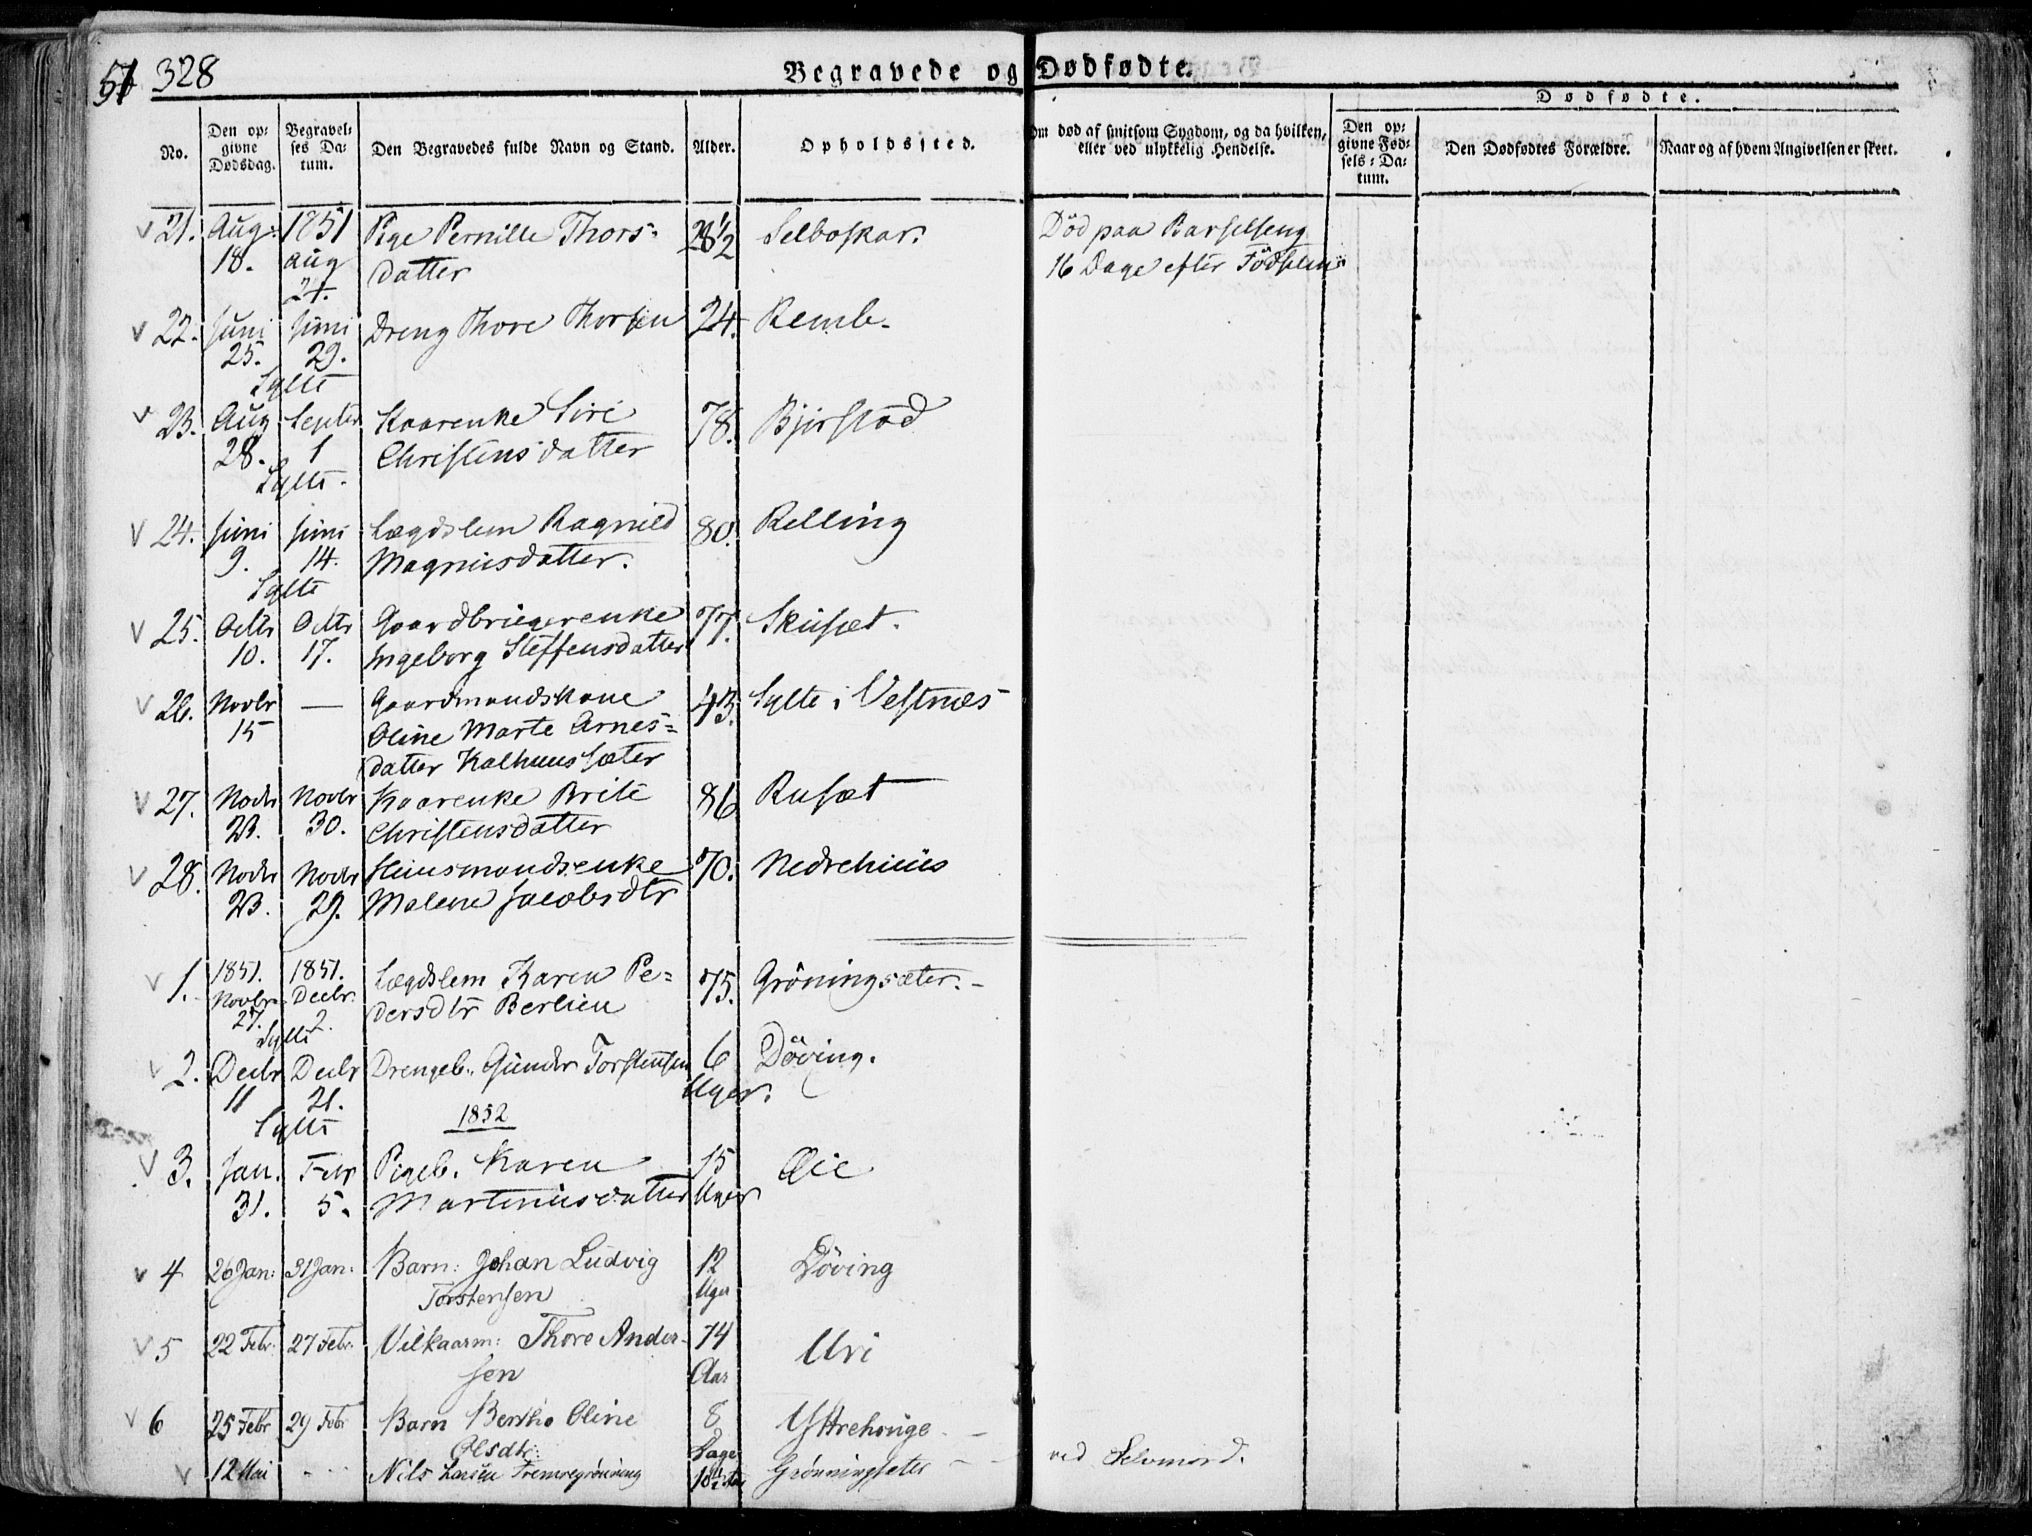 51 328
Begravede og Dødfødte.
Dødfødte.
No.
Den op=
givne
Dødsdag.
Begravel=
ses Da=
tum.
Den Begravedes fulde Navn og Stand.
Alder.
Opholdssted.
Om død af smitsom Sygdom, og da hvilken,
eller ved ulykkelig Hendelse.
Den op=
givne Fød=
sels=Da=
tum.
Den Dødfødtes Forældre.
Naar og af hvem Angivelsen er skeet.
21. Aug: 1851 Pige Pernille Thors= 28½ Selboskar. Död paa Barselseng
18. Aug datter 16 Dage efter Födselen
24.
22. Juni Juni Dreng Thore Thorsen 24. Remb.
25. 29.
Sylte
23. Aug Septbr Kaarenke Siri 78. Bjirstad
28. 1 Christensdatter
Sylte.
24. Juni Juni Lægdslem Ragnild 80. Relling
9. 14. Magnusdatter.
Sylte
25. Octbr Octbr Gaardbrugerenke 77. Skusæt.
10. 17. Ingeborg Steffensdatter
26. Novbr — Gaardmandskone 43. Sylte i Vestnæs
15 Oline Marte Arnes=
datter Kalhuussæter
27. Novbr Novbr Kaarenke Brite 86 Rusæt
23. 30. Christensdatter
28. Novbr Novbr Huusmandsenke 70. Nedrehuus
23. 29. Malene Jacobsdtr
1. 1851. 1851. Lægdslem Karen Pe= 75. Gröningsæter.
Novbr Decbr. dersdtr Berlien
27. 2.
Sylte
2. Decbr Decbr Drengeb. Gunder Torstensen 6 Döving.
11 21. Uger.
Sylte 1852
3. Jan. Febr Pigeb. Karen 15 Øie
31. 5. Martinusdatter Uger
4 26 Jan: 31 Jan: Barn: Johan Ludvig 12 Döving
Torstensen Uger
5 22 Febr. 27 Febr. Vilkaarm: Thore Ander- 74 Uri
sen Aar
6 25 Febr 29 Febr Barn Berthe Oline 8 Yttrehovge
Olsdtr: Dage
12 Mai Nils Larsen Fremregrönning Grönningsæter ved Selvmord.